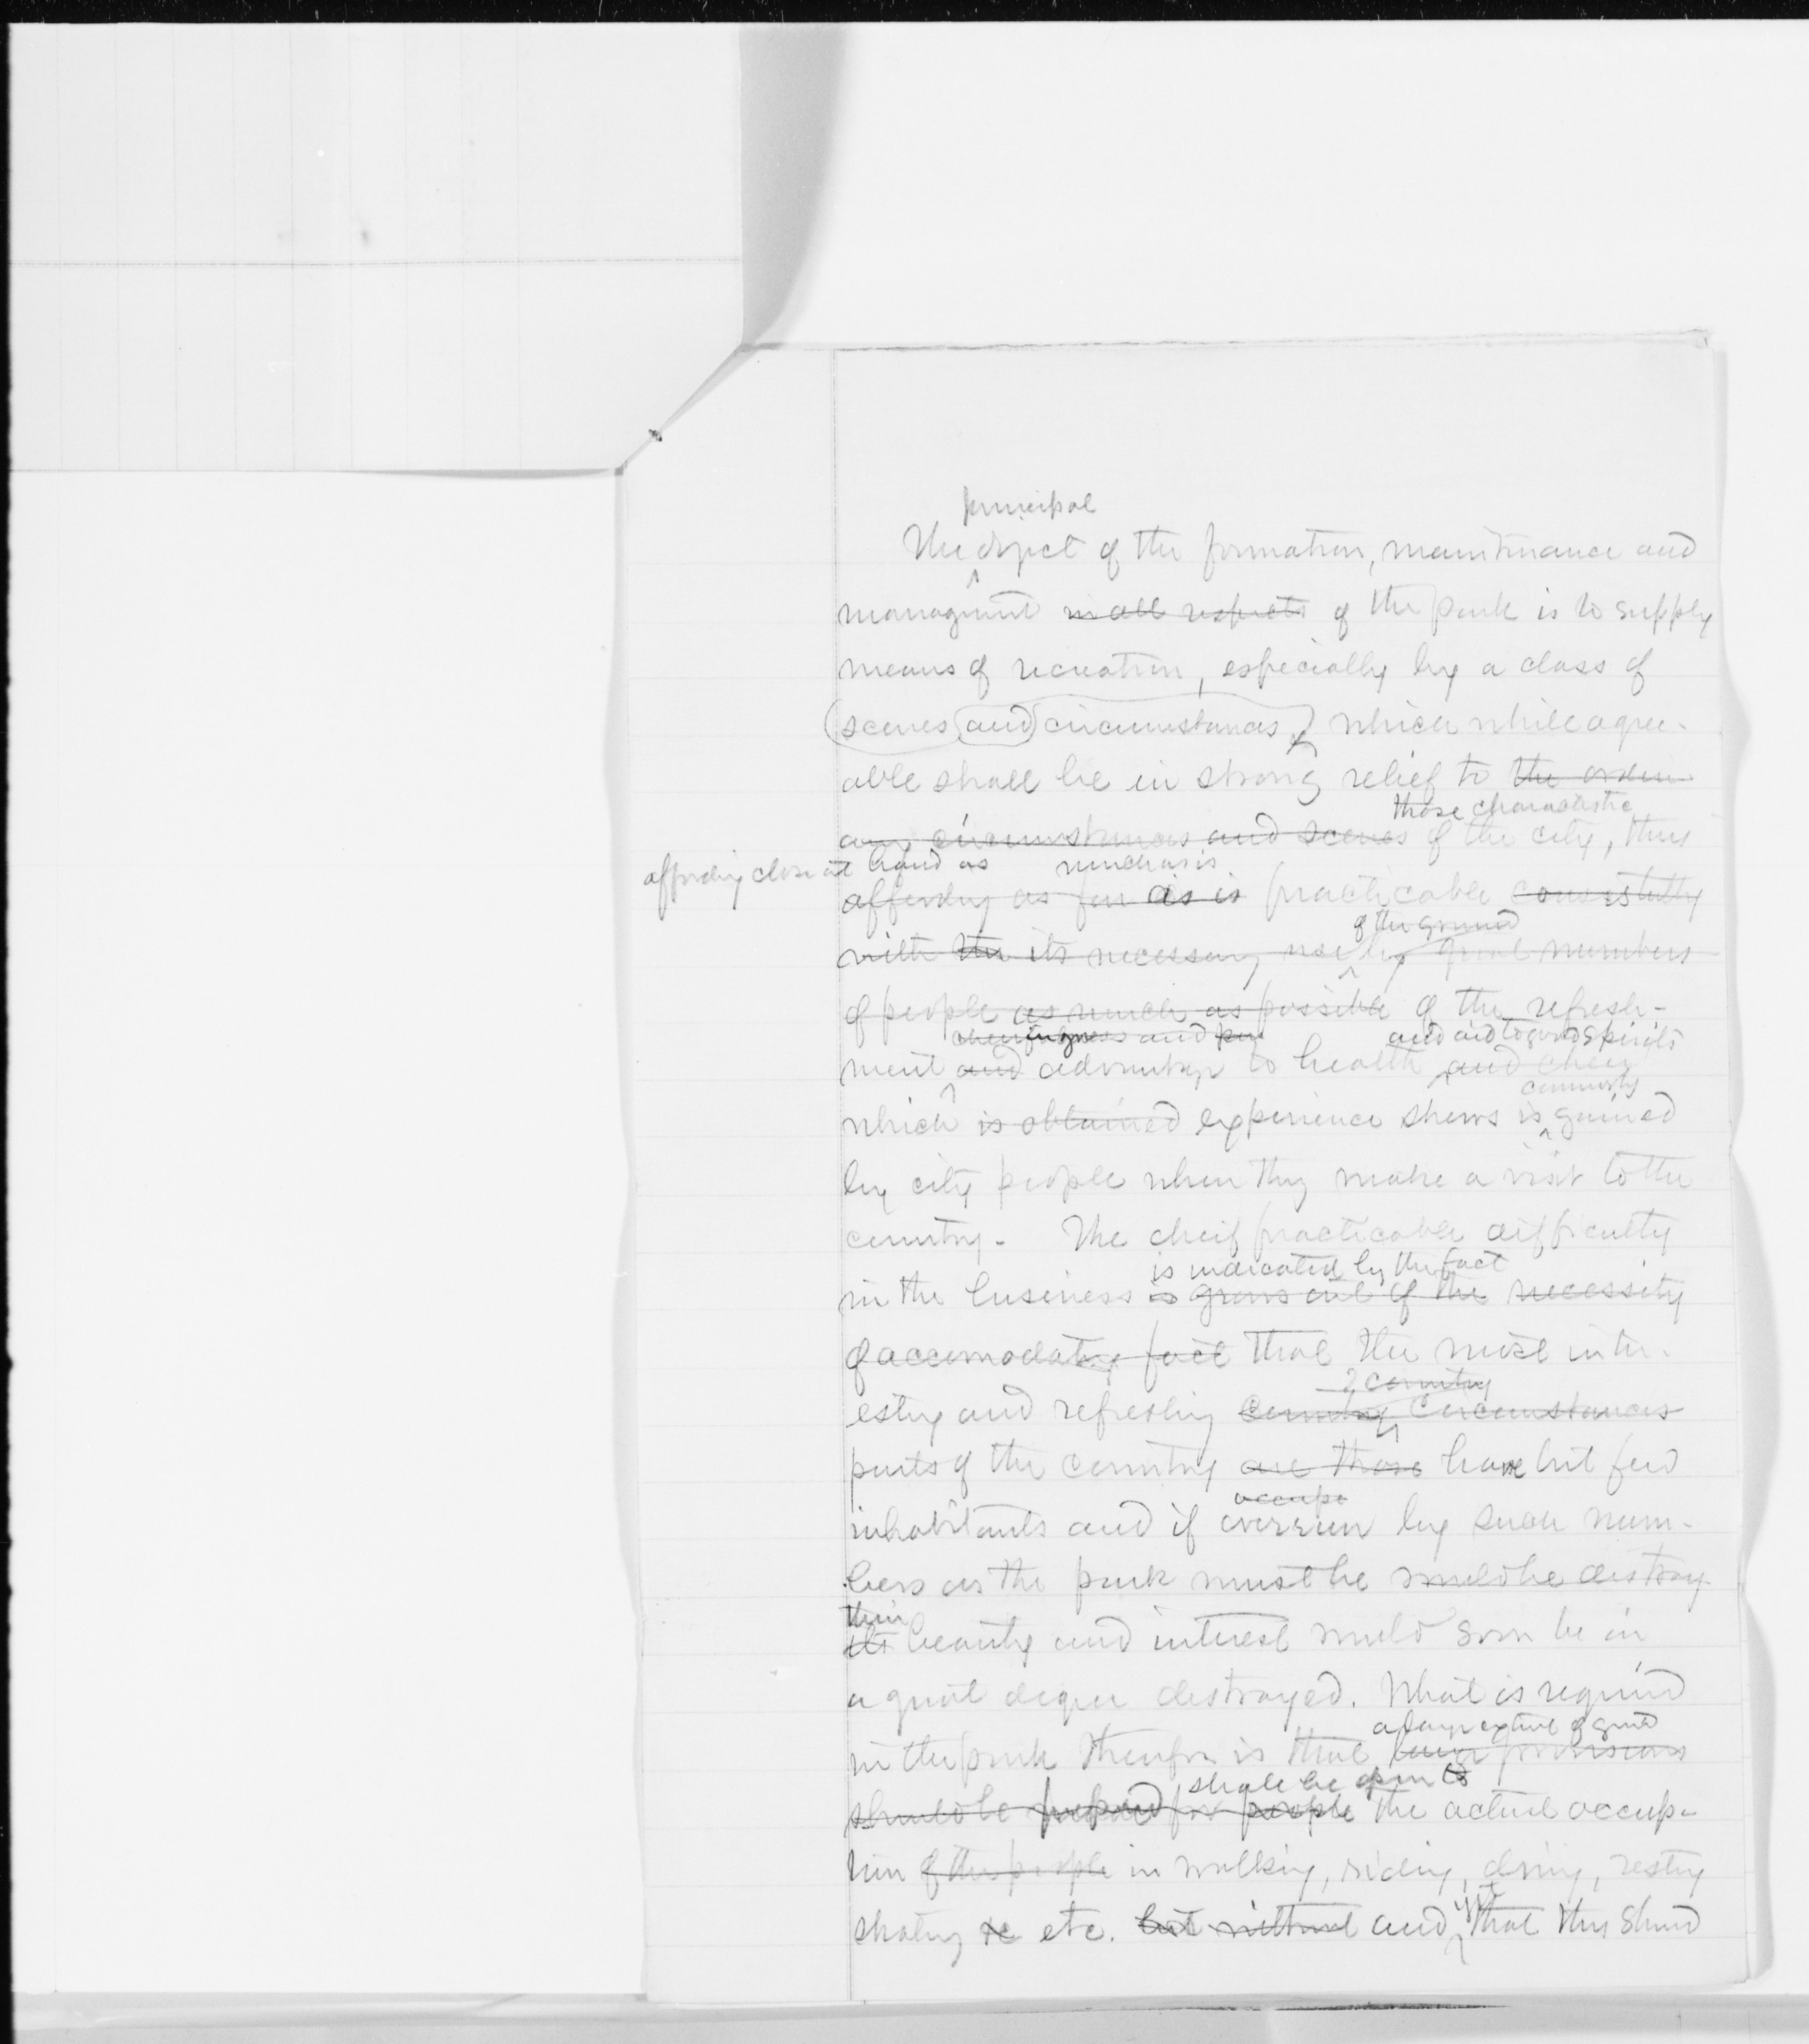 principal
The object of the formation, maintenance and
managment in all respects of the park is to supply
means of recreation, especially by a class of
scenes and circumstances, which while agree-
able shall be in strong relief to the ordin
those characteristic
ary circumstances and scenes of the city, thus
affording close at hand as much as is
affording as far as is practicable consistently
of the ground
with the its necessary use by great numbers
of people as much as possible of the refresh-
cheerfulness and and aid to good spirits
ment and advantage to health and cheer
commonly
which is obtained experience shows is gained
by city people when they make a visit to the
country- The cheif practicable difficulty
is indicated by the fact
in the business is grows out of the necessity
of accomodating fact that the most inter-
country
esting and refreshing country circumstances
parts of the country are those have but few
occupi
inhabitants and if overrun by such num-
bers as the park must be would be destroy-
their
its beauty and interest would soon be in
a great degree destroyed. What is required
a large extent of ground
in the park therefore is that large provisions
shall be open to
should be prepared for people the actual occupa-
tion of the people in walking, riding, driving, resting
yet
skating &c etc. but without and that they should